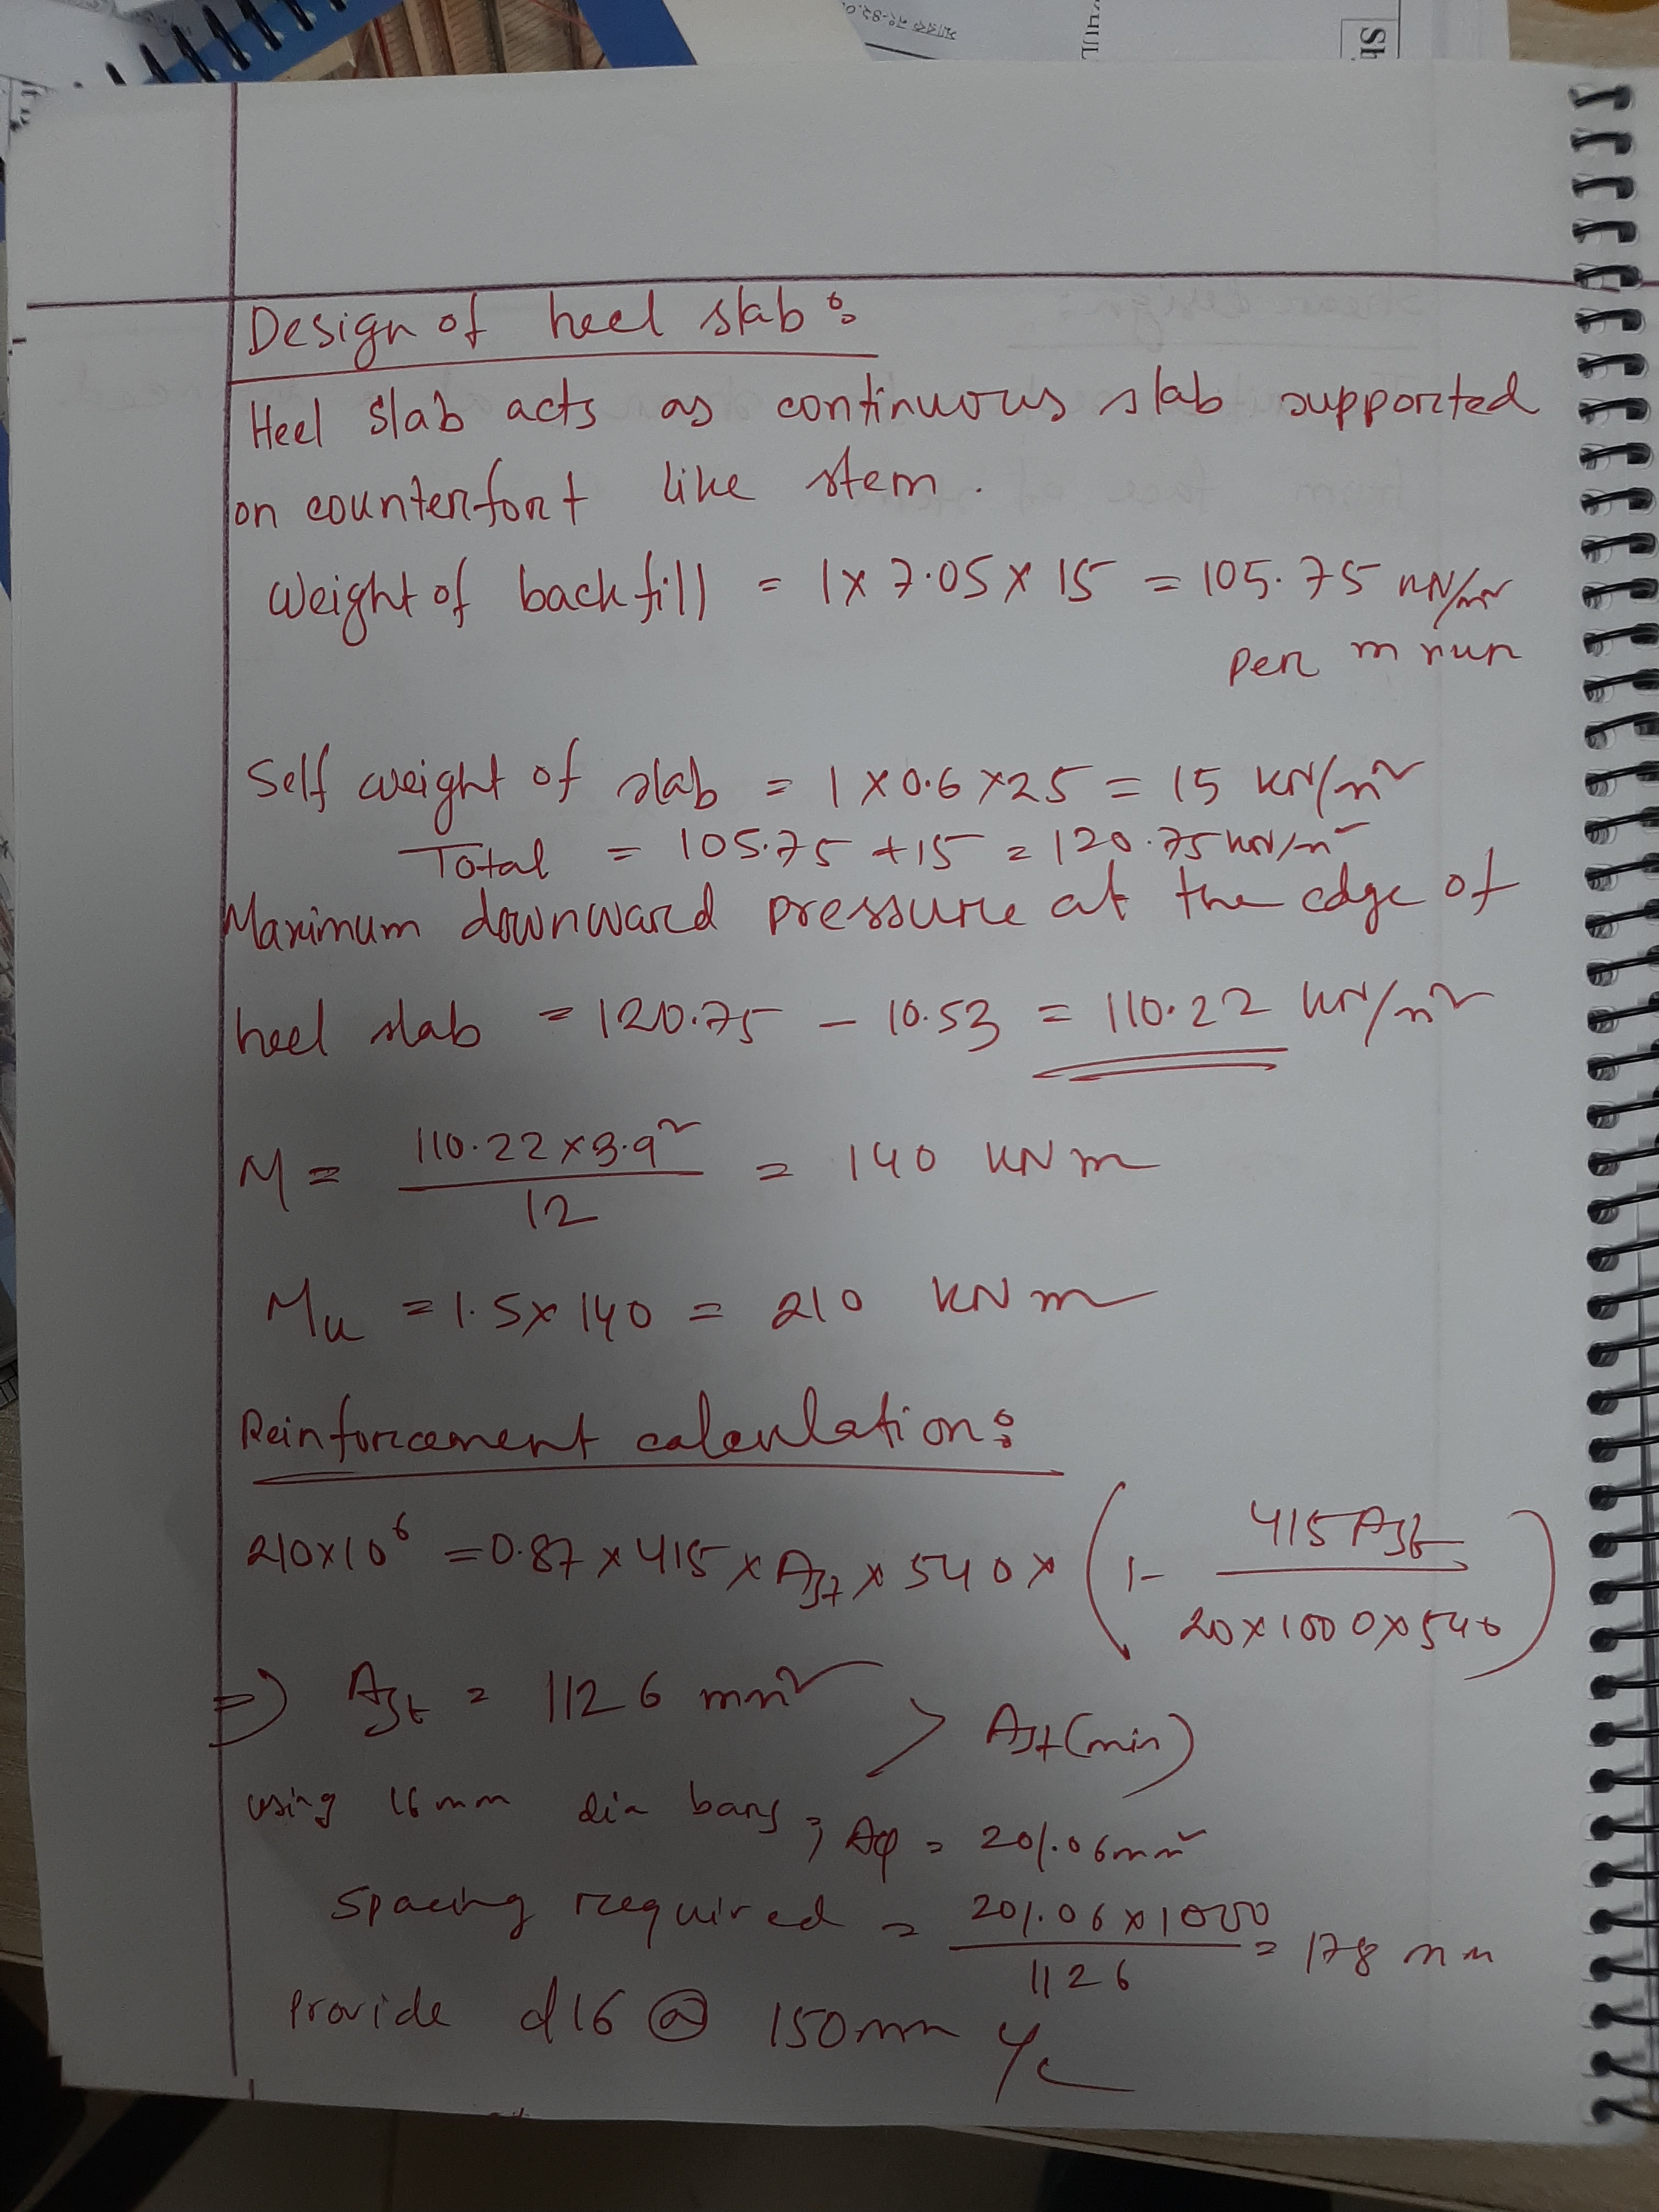 Sh
Design of heel slab :
Heel slab acts as continuous slab supported
on counterfort like stem.
Weight of backfill = 1 x 7.05 x 15 = 105.75 kN/m²
per m run
Self weight of slab = 1 x 0.6 x 25 = 15 kN/m²
Total = 105.75 + 15 = 120.75 kN/m²
Maximum downward pressure at the edge of
heel slab = 120.75 - 10.53 = 110.22 kN/m²
M = 110.22 x 3.9² / 12 = 140 kN m
Mu = 1.5 x 140 = 210 kN m
Reinforcement calculation :
210 x 10⁶ = 0.87 x 415 x Ast x 540 x (1 - 415 Ast / 20 x 1000 x 540)
⇒ Ast = 1126 mm² > Ast (min)
using 16 mm dia bars ; Aφ = 201.06 mm²
Spacing required = 201.06 x 1000 / 1126 = 178 mm
Provide d16 @ 150mm c/c